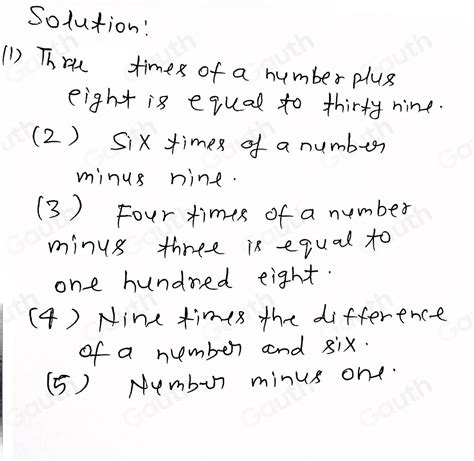 Solution:
(1) Three times of a number plus
eight is equal to thirty nine.
(2) Six times of a number
minus nine.
(3) Four times of a number
minus three is equal to
one hundred eight.
(4) Nine times the difference
of a number and six.
(5) Number minus one.